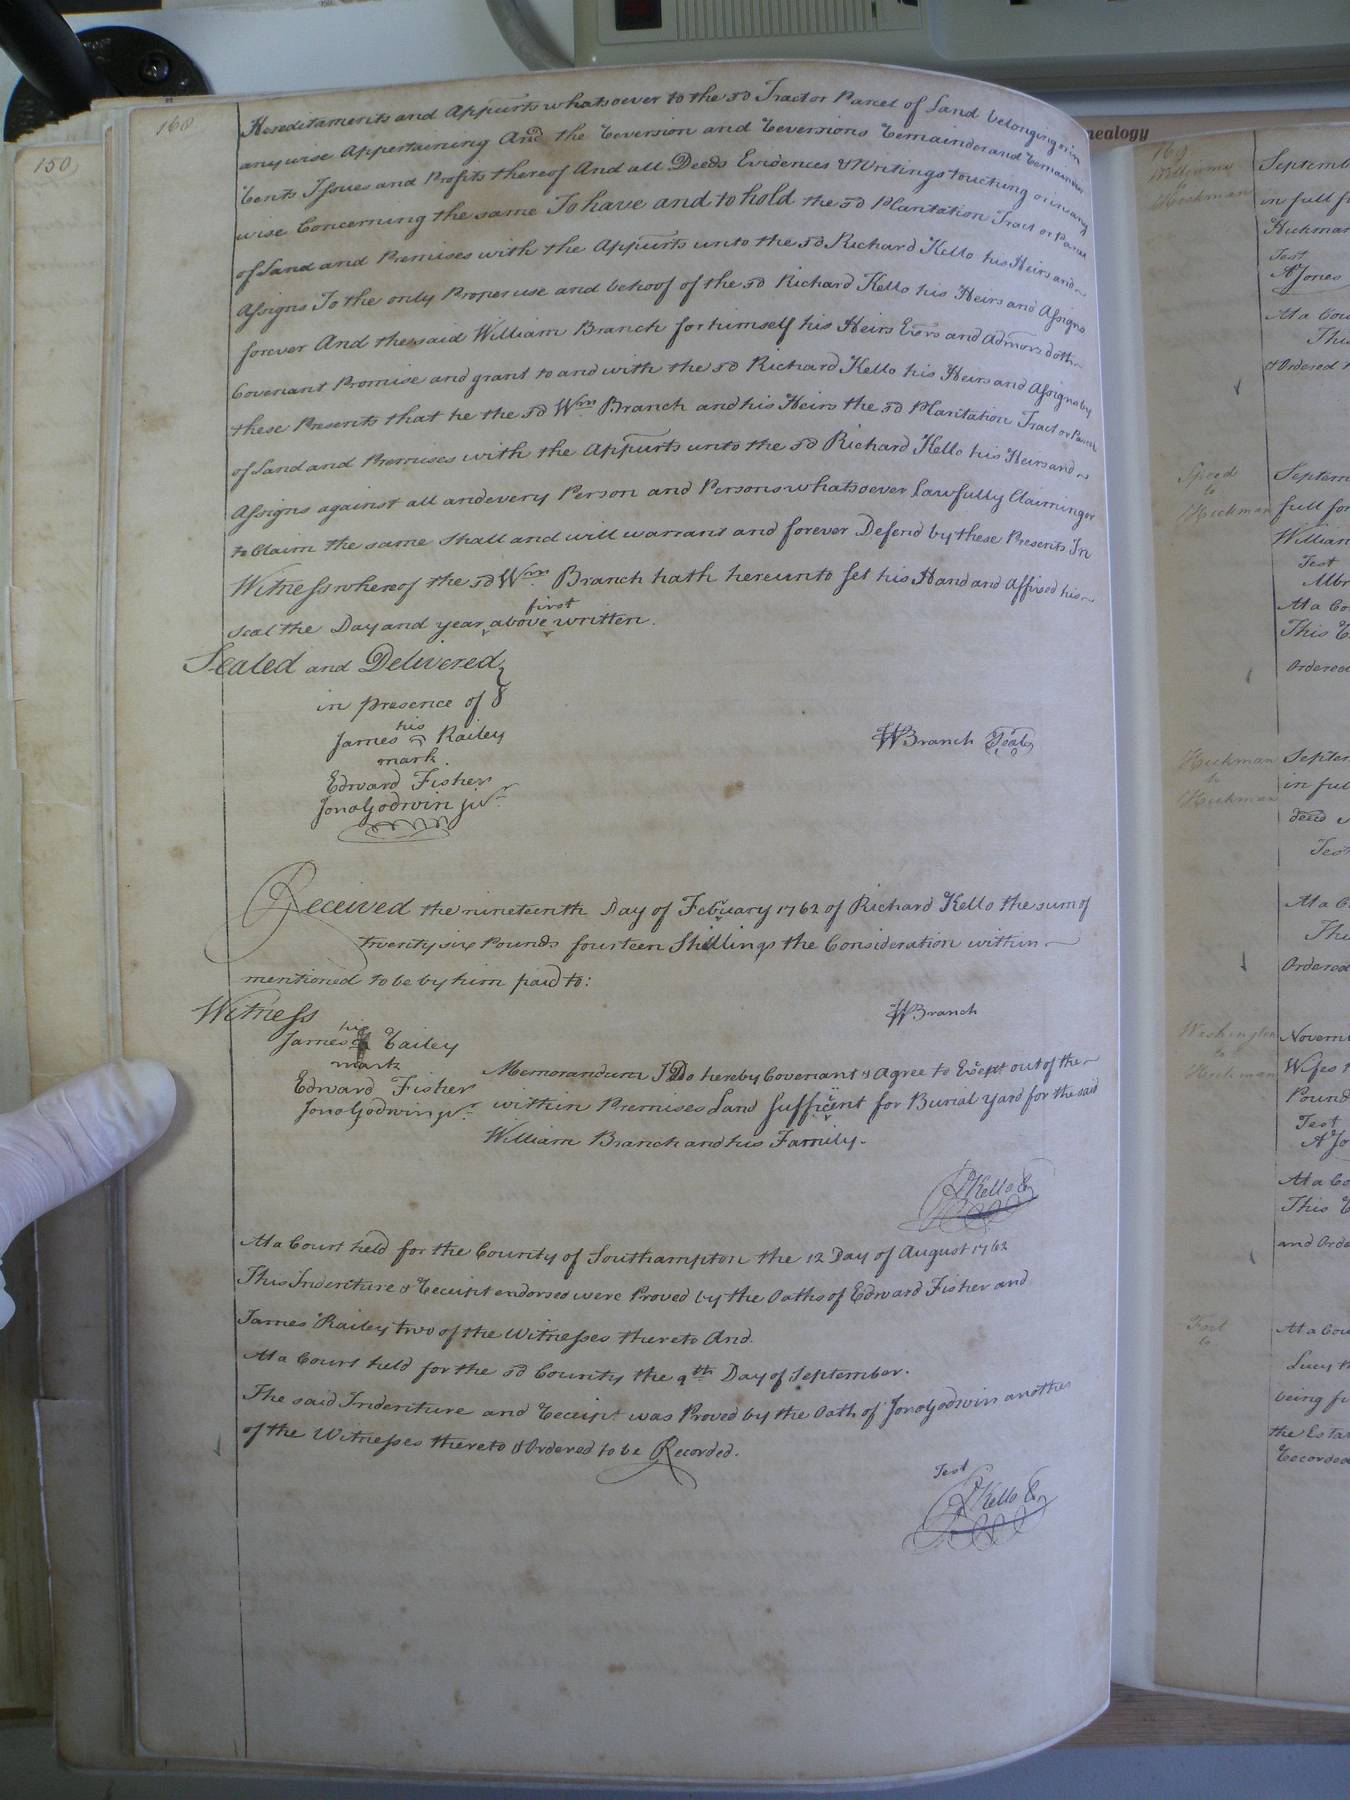 150
168
Hereditaments and Appurts whatsoever to the sd Tract or Parcel of Land belonging or in
any wise Appertaining And the Reversion and Reversions Remainder and Remainders
Rents Issues and Profits thereof And all Deeds Evidences & Writings touching or in any
wise Concerning the same To have and to hold the sd Plantation Tract or Parcel
of Land and Premises with the Appurts unto the sd Richard Kello his Heirs and
Assigns To the only Proper use and behoof of the sd Richard Kello his Heirs and Assigns
forever And the said William Branch for himself his Heirs Exors and Admors doth
Covenant Promise and grant to and with the sd Richard Kello his Heirs and Assigns by
these Presents that he the sd Wm Branch and his Heirs the sd Plantation Tract or Parcel
of Land and Premises with the Appurts unto the sd Richard Kello his Heirs and
Assigns against all and every Person and Persons whatsoever lawfully Claiming or
to Claim the same shall and will warrant and forever Defend by these Presents In
Witness whereof the sd Wm Branch hath hereunto set his Hand and Affixed his
first
seal the Day and year above written.
Sealed and Delivered
in presence of
his
James Railey
mark.
Edward Fisher
Jona Godwin jur
WBranch Seal
Received the nineteenth Day of February 1762 of Richard Kello the sum of
twenty six Pounds fourteen Shillings the Consideration within
mentioned to be by him paid to:
Witness
WBranch
his
James Railey
mark
Edward Fisher
Jona Godwin jur
Memorandum I Do hereby Covenant & Agree to Except out of the
within Premises Land sufficient for Burial yard for the said
William Branch and his Family.
RKello
At a Court held for the County of Southampton the 12 Day of August 1762
This Indenture & Receipt endorsed were Proved by the Oaths of Edward Fisher and
James Railey two of the Witnesses thereto And.
At a Court held for the sd County the 9th Day of September.
The said Indenture and Receipt was Proved by the Oath of Jona Godwin another
of the Witnesses thereto & Ordered to be Recorded.
Test
RKello
nealogy
169
Williams
to
Hickman
Septemb
in full f
Hickman
Test
AJones
At a Cou
This
& Ordered t
Speed
to
Hickman
Septem
full for
William
Test
At a Co
This
Ordered
Hickman
to
Hickman
Septem
in full
deed
Test
At a C
The
Ordered
Washington
to
Hickman
Novem
Wifes
Pound
Test
At a Co
This
and Orde
Fort
to
At a Cou
Lucy
being fu
the Esta
Recorded